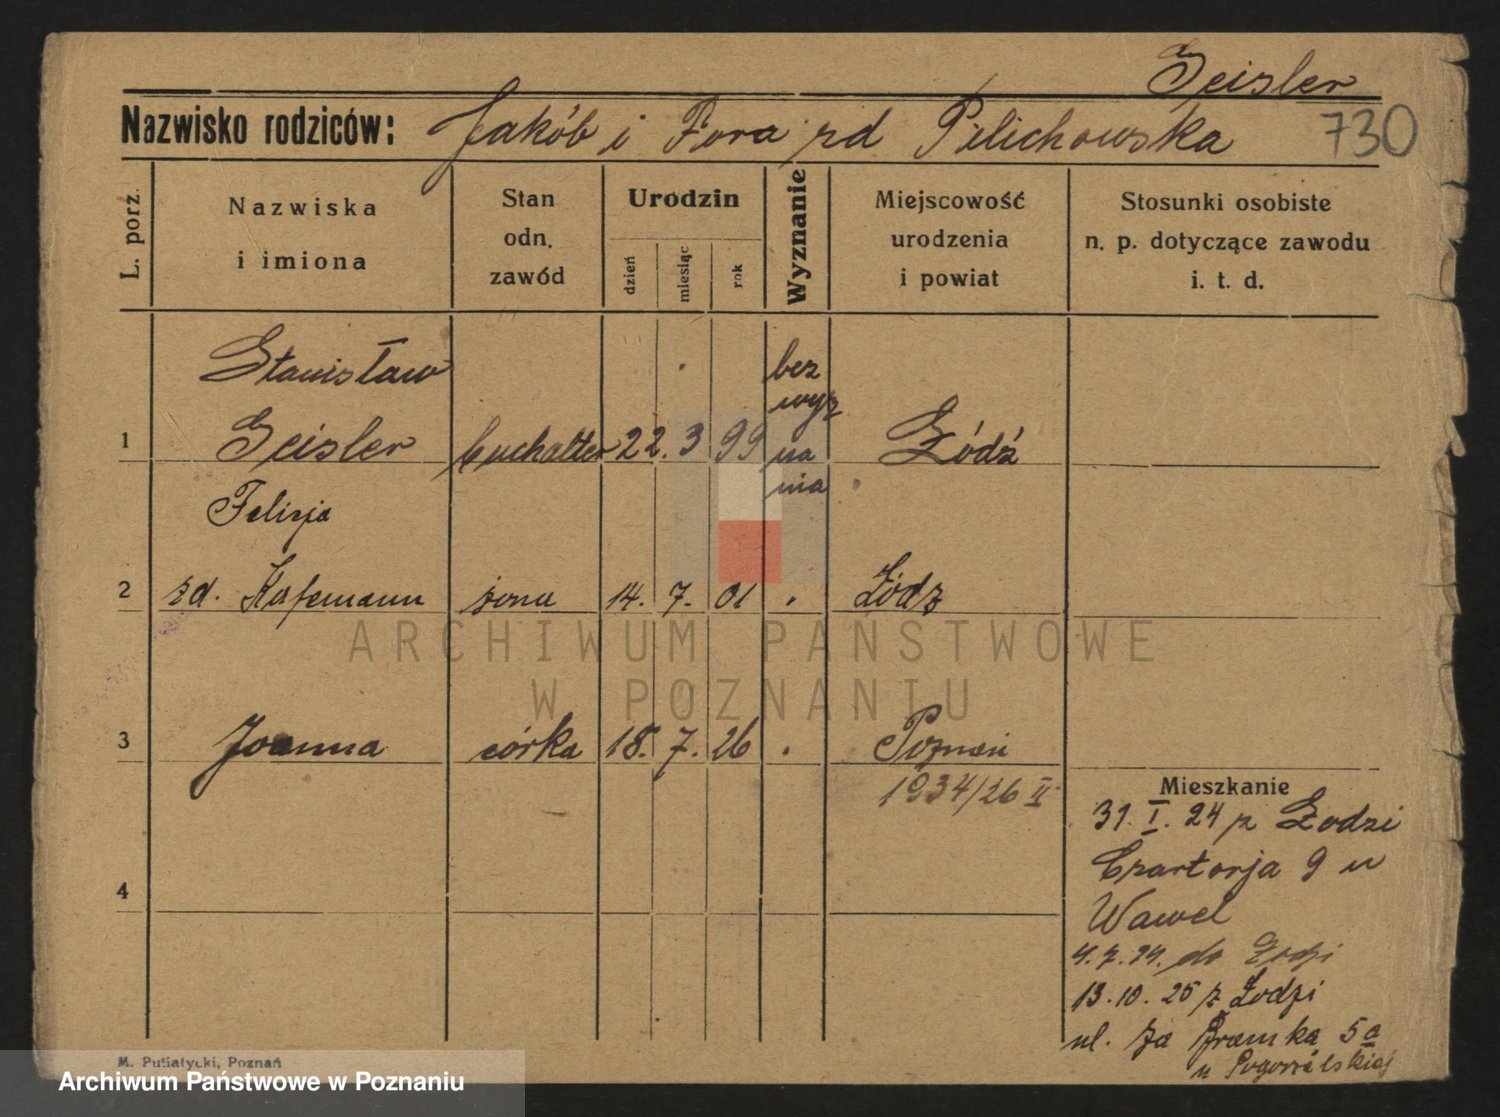 Geisler
Nazwisko rodziców: Jakób i Fora zd Pilichowska 730
L. porz.
Nazwiska
i imiona
Stan
odn.
zawód
Urodzin
dzień
miesiąc
rok
Wyznanie
Miejscowość
urodzenia
i powiat
Stosunki osobiste
n. p. dotyczące zawodu
i. t. d.
Stanisław
1 Geisler buchalter 22. 3 99 Łódź
bez
wyz
na
nia
Felicja
2 zd. Kafemann żona 14. 7. 01 Łódz
3 Joanna córka 18. 7. 26 Poznań
1934/26 II
4
Mieszkanie
31. I. 24 z Łodzi
Czartorja 9 u
Wawel
4.7.24. do Łodzi
13.10.25 z Łodzi
ul. Za Bramka 5a
u Pogorzelskiej
M. Putiatycki, Poznań
ARCHIWUM PAŃSTWOWE
W POZNANIU
Archiwum Państwowe w Poznaniu